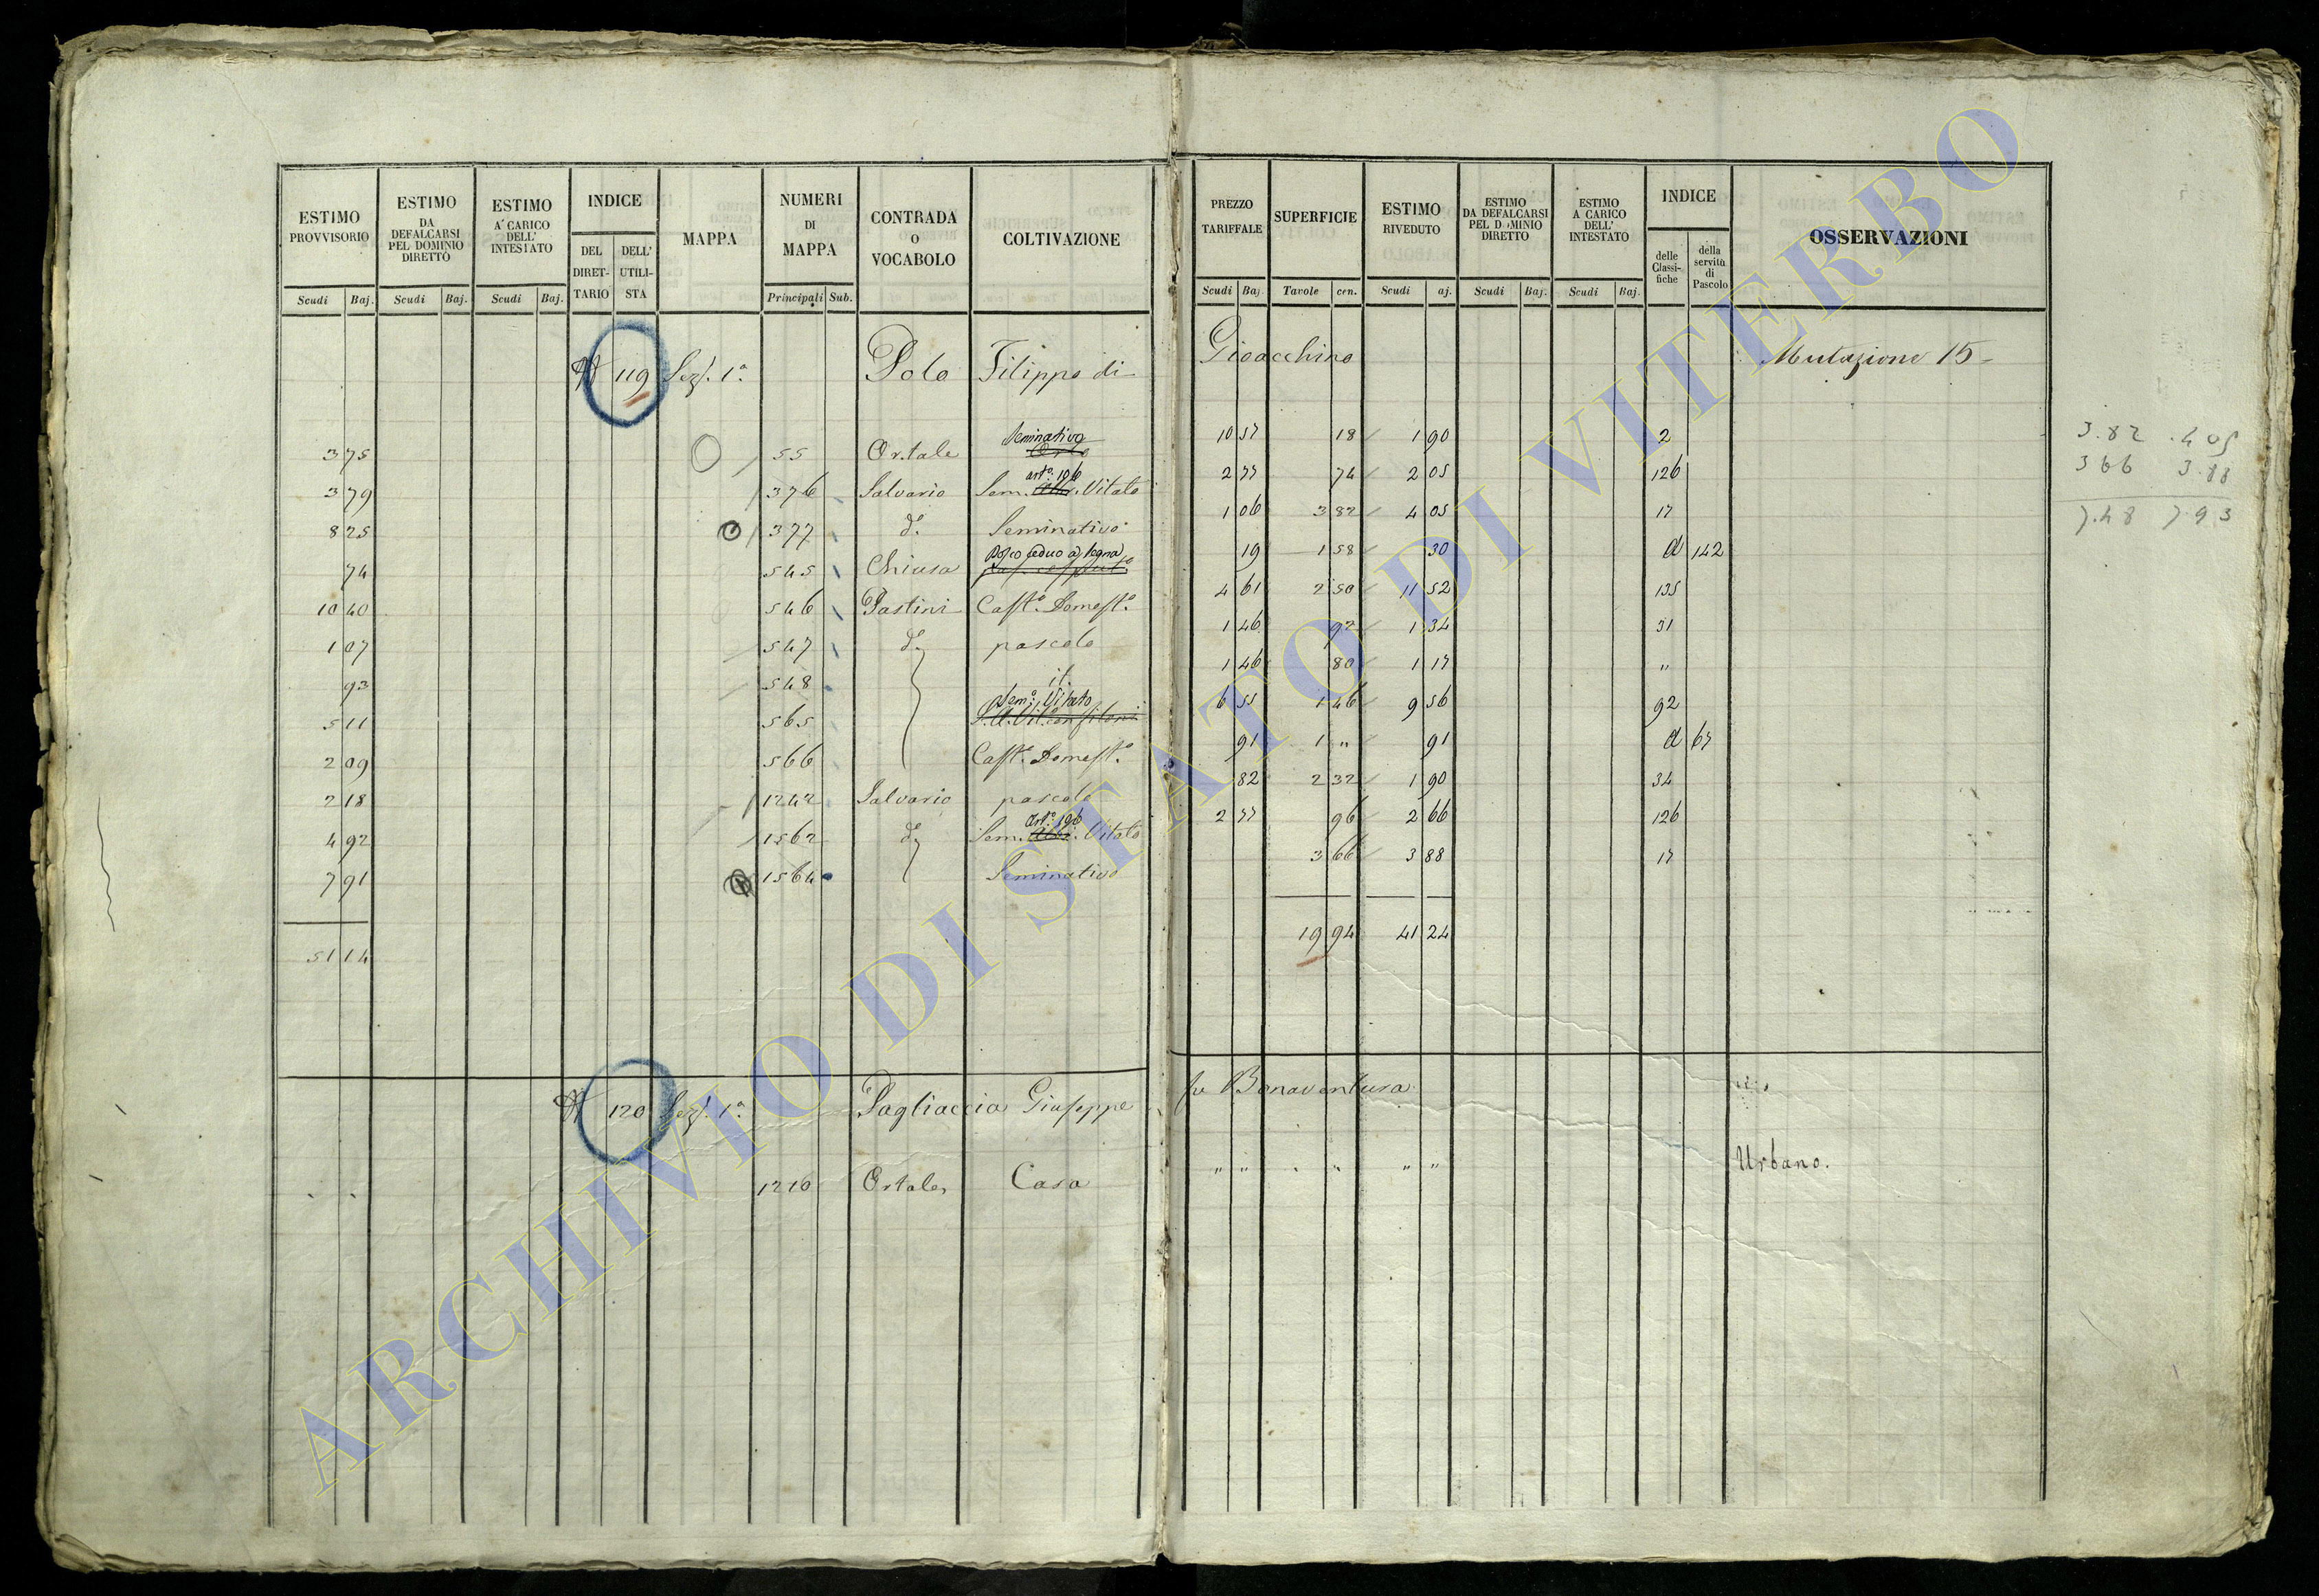 ESTIMO PROVVISORIO | ESTIMO DA DEFALCARSI PEL DOMINIO DIRETTO | ESTIMO A' CARICO DELL' INTESTATO | INDICE | MAPPA | NUMERI DI MAPPA | CONTRADA O VOCABOLO | COLTIVAZIONE | PREZZO TARIFFALE | SUPERFICIE | ESTIMO RIVEDUTO | ESTIMO DA DEFALCARSI PEL DOMINIO DIRETTO | ESTIMO A CARICO DELL' INTESTATO | INDICE | OSSERVAZIONI
DEL DIRETTARIO | DELL' UTILISTA | delle Classifiche | della servitù di Pascolo
Scudi | Baj. | Scudi | Baj. | Scudi | Baj. | Principali | Sub. | Scudi | Baj. | Tavole | cen. | Scudi | aj. | Scudi | Baj. | Scudi | Baj.
119 Sez. 1ª Polo Filippo di Gioacchino Mutazione 15
3 75 | 55 | Ortale | Seminativo Orto | 10 57 | 18 | 1 90 | 2
3 79 | 376 | Salvario | Sem. Vitato | 2 77 | 74 | 2 05 | 126
8 25 | 377 | dº | Seminativo | 1 06 | 3 82 | 4 05 | 17
74 | 545 | Chiusa | Bosco ceduo a legna | 19 | 1 58 | 30 | A | 142
10 40 | 546 | Pastini | Castº Domestº | 4 61 | 2 50 | 11 52 | 135
1 07 | 547 | dº | pascolo | 1 46 | 92 | 1 34 | 31
93 | 548 | id. | 1 46 | 80 | 1 17 | "
5 11 | 565 | Semº Vitato | 6 55 | 1 46 | 9 56 | 92
2 09 | 566 | Castº Domestº | 91 | 1 " | 91 | A | 67
2 18 | 1242 | Salvario | pascolo | 82 | 2 32 | 1 90 | 34
4 92 | 1562 | dº | Sem. Vitato | 2 77 | 96 | 2 66 | 126
7 91 | 1564 | Seminativo | 3 66 | 3 88 | 17
51 14 | 19 94 | 41 24
3.82 .4 05
3 66 3.88
7.48 7.93
120 Sez. 1ª Pagliaccia Giuseppe fu Bonaventura
1216 | Ortale | Casa | " " | " | " " | Urbano.
ARCHIVIO DI STATO DI VITERBO